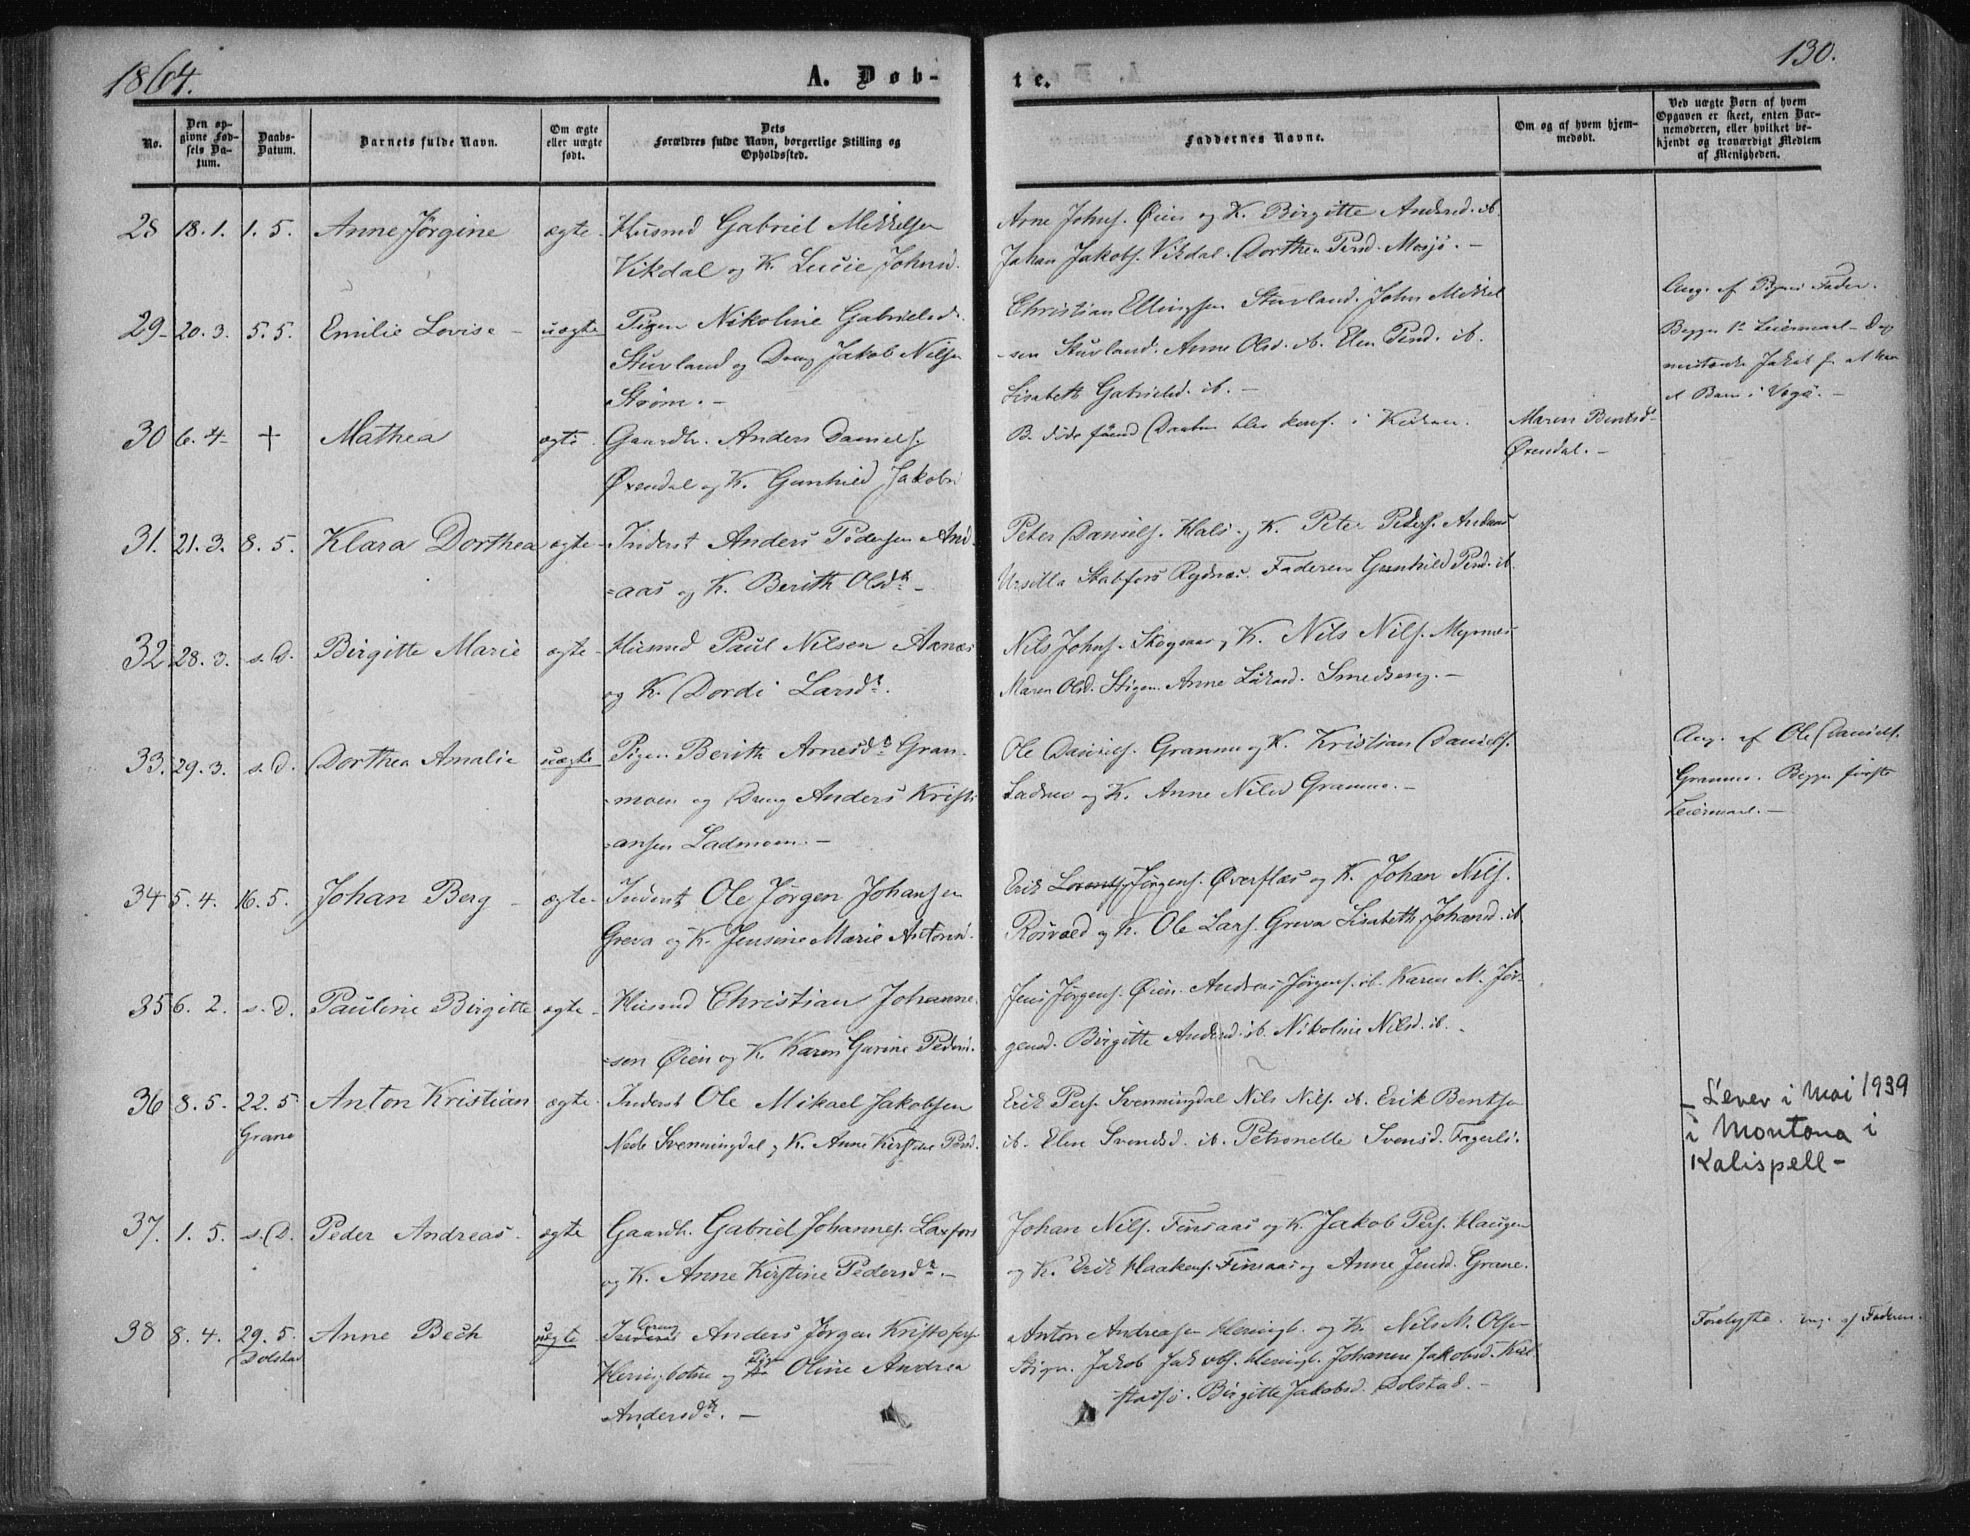 1864.
A. Døb-
te.
130.
No.
Den op-
givne Fød-
sels Da-
tum.
Daabs-
Datum.
Barnets fulde Navn.
Om ægte
eller uægte
født.
Dets
Forældres fulde Navn, borgerlige Stilling og
Opholdssted.
Faddernes Navne.
Om og af hvem hjem-
medøbt.
Ved uægte Børn af hvem
Opgaven er skeet, enten Bar-
nemoderen, eller hvilket be-
kjendt og troværdigt Medlem
af Menigheden.
28 18.1. 1.5. Anne Jørgine ægte Husmd Gabriel Mikkelsen
Vikdal og K. Lucie Johnsd.
Arne Johns. Øien og K. Birgitte Andersd. ib.
Johan Jakobs. Vikdal. Dorthea Persd. Mosjø. -
29 20.3. 5.5. Emilie Lovise - uægte Pigen Nikoline Gabrielsd.
Stuvland og Dreng Jakob Nilsen
Strøm. -
Christian Ellingsen Stuvland. John Mikkel
-sen Stuvland. Anne Olsd. ib. Elen Persd. ib.
Lisabeth Gabrielsd. ib. -
Ang. af Pigens Fader.
Begges 1ste Leiermaal -
Jakob
et Barn i
30 6.4 + Mathea ægte Gaardbr. Anders Daniels.
Øxendal og K. Gunhild Jakobsd
B. døde førend Daaben blev konf. i Kirken.
Maren Bentsd
Øxendal. -
31. 21.3. 8.5. Klara Dorthea ægte - Inderst Anders Pedersen And
=aas og K. Berith Olsdt. -
Peter Daniels. Hals og K. Peter Peders. Andaas
Ursilla Stabfors Rydnæs. Faderen Gunhild Persd. ib.
32 28.3. s.D. Birgitte Marie ægte - Husmd Paul Nilsen Aanæs
og K. Dordi Larsdt.
Nils Johns. Skogsaa og K. Nils Nils. Myrnes
Maren Olsd. Stigen. Anne Smedseng. -
33. 29.3. s.D. Dorthea Amalie uægte Pigen Berith Arnesdt Gran-
-moen og Dreng Anders Kristi
=ansen Ladmoen. -
Ole Daniels. Granmo og K. Kristian Daniels.
Ladmo og K. Anne Nilsd Granmo. -
Ang. af Ole Daniels.
Granmo. Begges første
Leiermaal. -
34 5.4. 16.5. Johan Berg - ægte - Inderst Ole Jørgen Johansen
Greva og K. Jensine Marie Antonsd.
Erik Lorents Jørgens. Øverflæs og K. Johan Nils.
Røsvold og K. Ole Lars. Greva Lisabeth Johansd. ib
35 6.2. s.D. Pauline Birgitte ægte - Husmd Christian Johanne
-sen Øien og K. Karen Gurine Pedersd.
Jens Jørgens. Øien. Andreas Jørgens. ib. Karen M. Jør-
gensd. Birgitte Andersd. ib. Nikoline Nilsd. ib. -
36 8.5. 22.5. Anton Kristian ægte Inderst Ole Mikael Jakobsen
Grane
Nedr Svenningdal og K. Anne Kirstine Persd.
Erik Pers. Svenningdal Nils Nils. ib. Erik Bentsen
ib. Elen Svendsd. ib. Petronelle Svensd. Fagerli.
- Lever i mai 1939
i Montana i
Kalispell -
37. 1.5. s.D. Peder Andreas. ægte Gaardbr. Gabriel Johannes. Laxfors
og K. Anne Kirstine Pedersdt. -
Johan Nils. Finsaas og K. Jakob Pers. Haugen
og K. Erik Haakens. Finsaas og Anne Jensd. Grane.
38 8.4. 29.5. Anne Bech uægte Dreng Anders Jørgen Kristofers.
Dolstad
Heringbotne og Pige Oline Andrea
Andersdt. -
Anton Andreasen Heringb. og K. Nils M. Olsen
Stign. Jakob Jakobs. Heringb. Johanne Jakobsd. Kul
stadsjø. Birgitte Jakobsd. Dolstad. -
Forelyste. Ang. af Faderen.